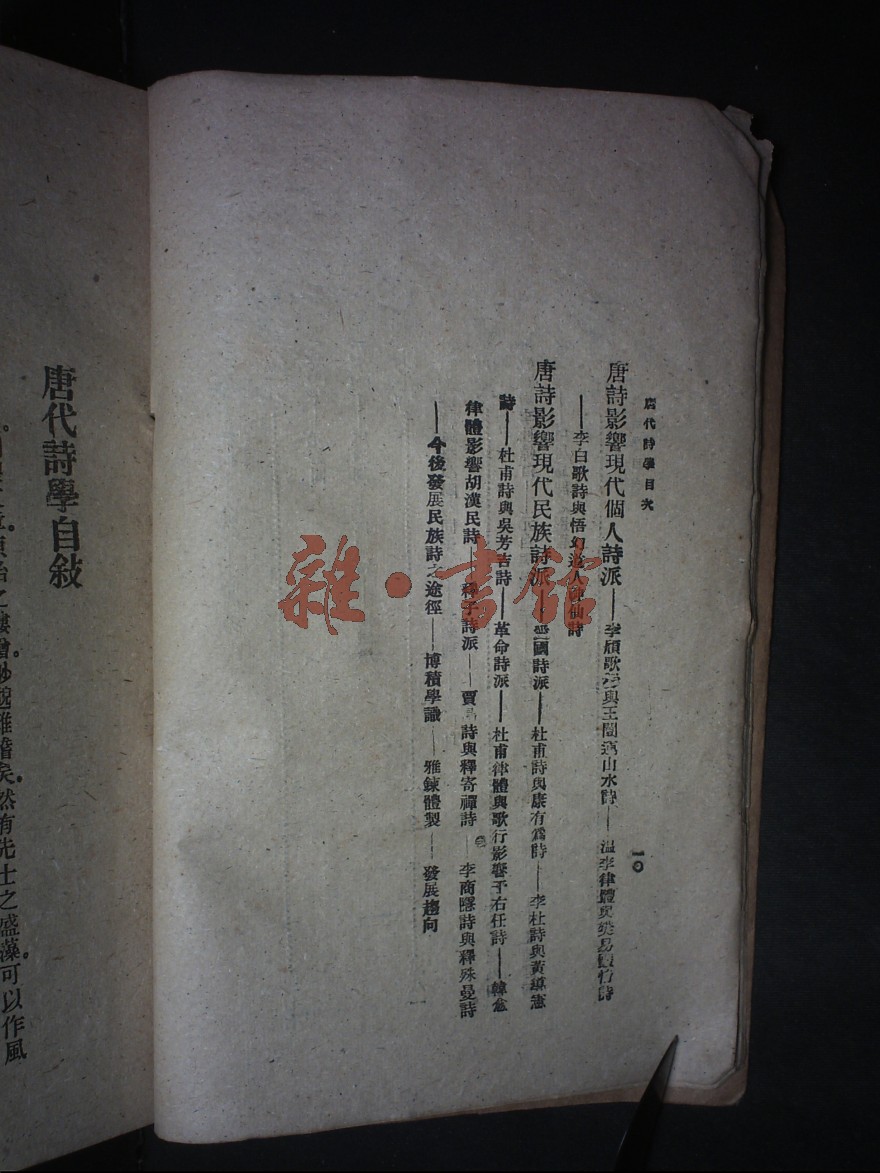 唐代詩學目次
一〇
唐詩影響現代個人詩派——李頎歌行與王闓運山水詩——溫李律體與樊易豔情詩
——李白歌詩與悟幻道人神仙詩
唐詩影響現代民族詩派——愛國詩派——杜甫詩與康有爲詩——李杜詩與黃遵憲
詩——杜甫詩與吳芳吉詩——革命詩派——杜甫律體與歌行影響于右任詩——韓愈
律體影響胡漢民詩——釋子詩派——賈島詩與釋寄禪詩——李商隱詩與釋殊曼詩
——今後發展民族詩之途徑——博積學識——雅鍊體製——發展趨向
唐代詩學自敍
然有先士之盛藻。可以作風
雜·書館